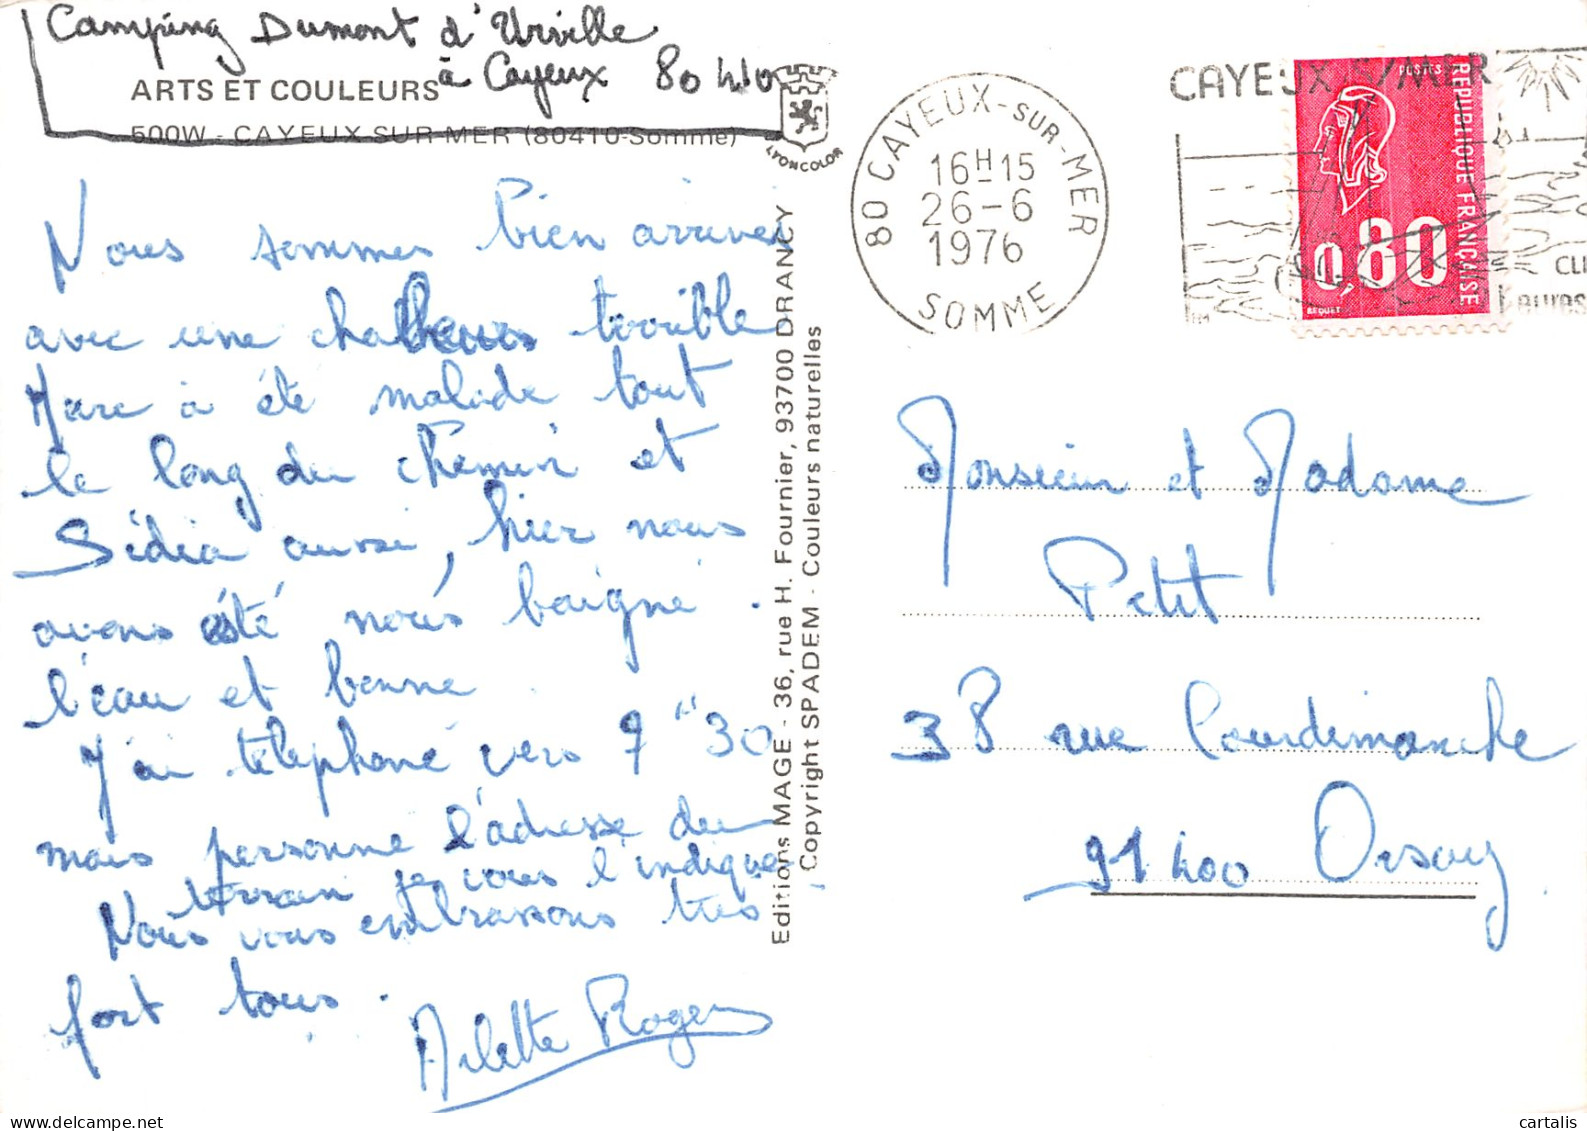 Camping Dumont d'Urville
à Cayeux 80410
ARTS ET COULEURS
500W - CAYEUX-SUR-MER (80410-Somme)
LYONCOLOR
Nous sommes bien arrivés
avec une chaleur terrible
Marc a été malade tout
le long du chemin et
Sidia aussi, hier nous
avons été nous baigné.
l'eau et bonne
J'ai téléphoné vers 9 H 30
mais personne l'adresse du
terrain je vous l'indique
Nous vous embrassons très
fort tous.
Arlette Roger
Editions MAGE - 36, rue H. Fournier, 93700 DRANCY
Copyright SPADEM - Couleurs naturelles
80 CAYEUX-SUR-MER
16H15
26-6
1976
SOMME
CAYEUX S/MER
CLI
POSTES
REPUBLIQUE FRANCAISE
0,80
BEQUET
Monsieur et Madame
Petit
38 rue Courdimanche
91400 Orsay
delcampe.net
cartalis